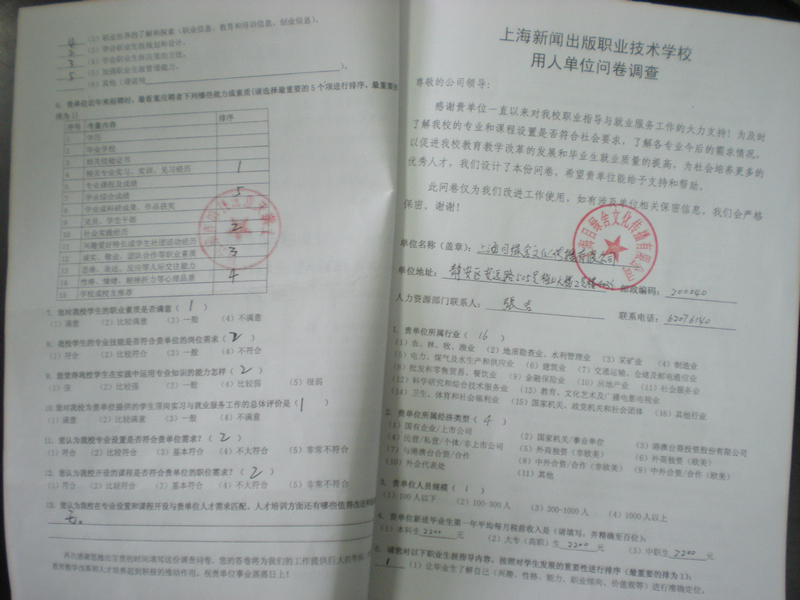 上海新闻出版职业技术学校
用人单位问卷调查
尊敬的公司领导：
感谢贵单位一直以来对我校职业指导与就业服务工作的大力支持！为及时
了解我校的专业和课程设置是否符合社会要求，了解各专业今后的需求情况，
以促进我校教育教学改革的发展和毕业生就业质量的提高，为社会培养更多的
优秀人才，我们设计了本份问卷，希望贵单位能给予支持和帮助。
此问卷仅为我们改进工作使用，如有涉及单位相关保密信息，我们会严格
保密，谢谢！
单位名称（盖章）：
单位地址： 邮政编码：200040
人力资源部门联系人： 联系电话：62076140
1. 贵单位所属行业（ 16 ）
（1）农、林、牧、渔业 （2）地质勘查业、水利管理业 （3）采矿业 （4）制造业
（5）电力、煤气及水生产和供应业 （6）建筑业 （7）交通运输、仓储及邮电通信业
（8）批发和零售贸易、餐饮业 （9）金融保险业 （10）房地产业 （11）社会服务业
（12）科学研究和综合技术服务业 （13）教育、文化艺术及广播电影电视业
（14）卫生、体育和社会福利业 （15）国家机关、政党机关和社会团体 （16）其他行业
2. 贵单位所属经济类型（ 4 ）
（1）国有企业/上市公司 （2）国家机关/事业单位 （3）港澳台商投资股份有限公司
（4）民营/私营/个体/非上市公司 （5）外商独资（非欧美） （6）外商独资（欧美）
（7）与港澳台合资/合作 （8）中外合资/合作（非欧美） （9）中外合资/合作（欧美）
（10）外企代表处 （11）其他
3. 贵单位人员规模（ 1 ）
（1）100人以下 （2）100-300人 （3）300-1000人 （4）1000人以上
4. 贵单位新进毕业生第一年平均每月税前收入是（请填写，并精确至百位）：
（1）本科生 2200 元 （2）大专（高职）生 2200 元 （3）中职生 2200 元
5. 请您对以下职业生涯指导内容，按照对学生发展的重要性进行排序（最重要的排为1）：
1 （1）让毕业生了解自己（兴趣、性格、能力、职业倾向、价值观等）进行准确定位。
4 （2）职业世界的了解和探索（职业信息、教育和培训信息、创业信息）。
2 （3）学会职业生涯规划和设计。
3 （4）学会职业生涯决策的方法。
5 （5）加强职业生涯管理能力。
（6）其他（请说明
6. 贵单位近年来招聘时，最看重应聘者下列哪些能力或素质（请选择最重要的5个项进行排序，最重要的
排为1）
序号 考量内容 排序
1 学历
2 毕业学校
3 相关技能证书
4 相关专业实习、实训、见习经历 1
5 专业课程及成绩
7 学业综合成绩 5
8 学业或科研成果、作品获奖
9 党员、学生干部
10 社会实践经历 2
11 兴趣爱好特长或学生社团活动经历
12 诚实、敬业、团队合作等职业素质 3
13 思维、表达、反应等人际交往能力
14 性格、情绪、耐挫折力等心理品质 4
15 学校或校友推荐
7. 您对我校学生的职业素质是否满意（ 1 ）
（1）满意 （2）比较满意 （3）一般 （4）不满意
8. 我校学生的专业技能是否符合贵单位的岗位需求（ 2 ）
（1）符合 （2）比较符合 （3）一般 （4）不符合
9. 您觉得我校学生在实践中运用专业知识的能力怎样（ 2 ）
（1）强 （2）比较强 （3）一般 （4）比较弱 （5）很弱
10. 您对我校为贵单位提供的学生顶岗实习与就业服务工作的总体评价是（ 1 ）
（1）满意 （2）比较满意 （3）一般 （4）不满意
11. 您认为我校专业设置是否符合贵单位需求？（ 2 ）
（1）符合 （2）比较符合 （3）基本符合 （4）不大符合 （5）非常不符合
12. 您认为我校开设的课程是否符合贵单位的职位需求？（ 2 ）
（1）符合 （2）比较符合 （3）基本符合 （4）不大符合 （5）非常不符合
13. 您认为我校在专业设置和课程开设与贵单位人才需求匹配、人才培养方面还有哪些值得改进和
无。
再次感谢您抽出宝贵的时间填写这份调查问卷，您的答卷将为我们的工作提供巨大的帮助，
教育教学改革和人才培养起到积极的推动作用。祝贵单位事业蒸蒸日上！